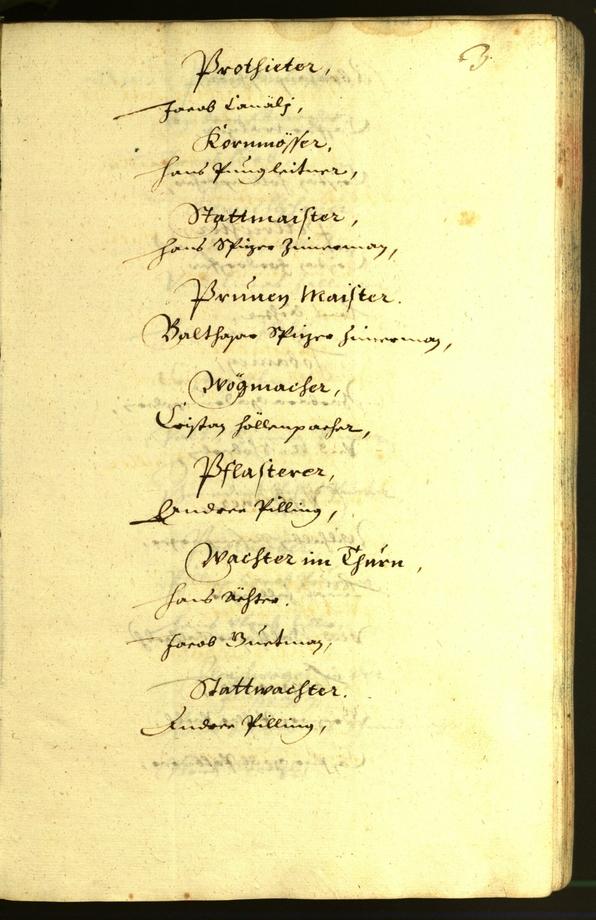 3
Prothieter,
Jacob Canälj,
Kornmösser,
Hanns Pungleitner,
Stattmaister,
Hanns Spizer Zimerman,
Prunen Maister.
Balthasar Spizer Zimerman,
Wögmacher,
Cristan Höllenpacher,
Pflasterer,
Andree Pilling,
Wachter im Thurn,
Hanns
Jacob Guetman,
Stattwachter.
Andree Pilling,